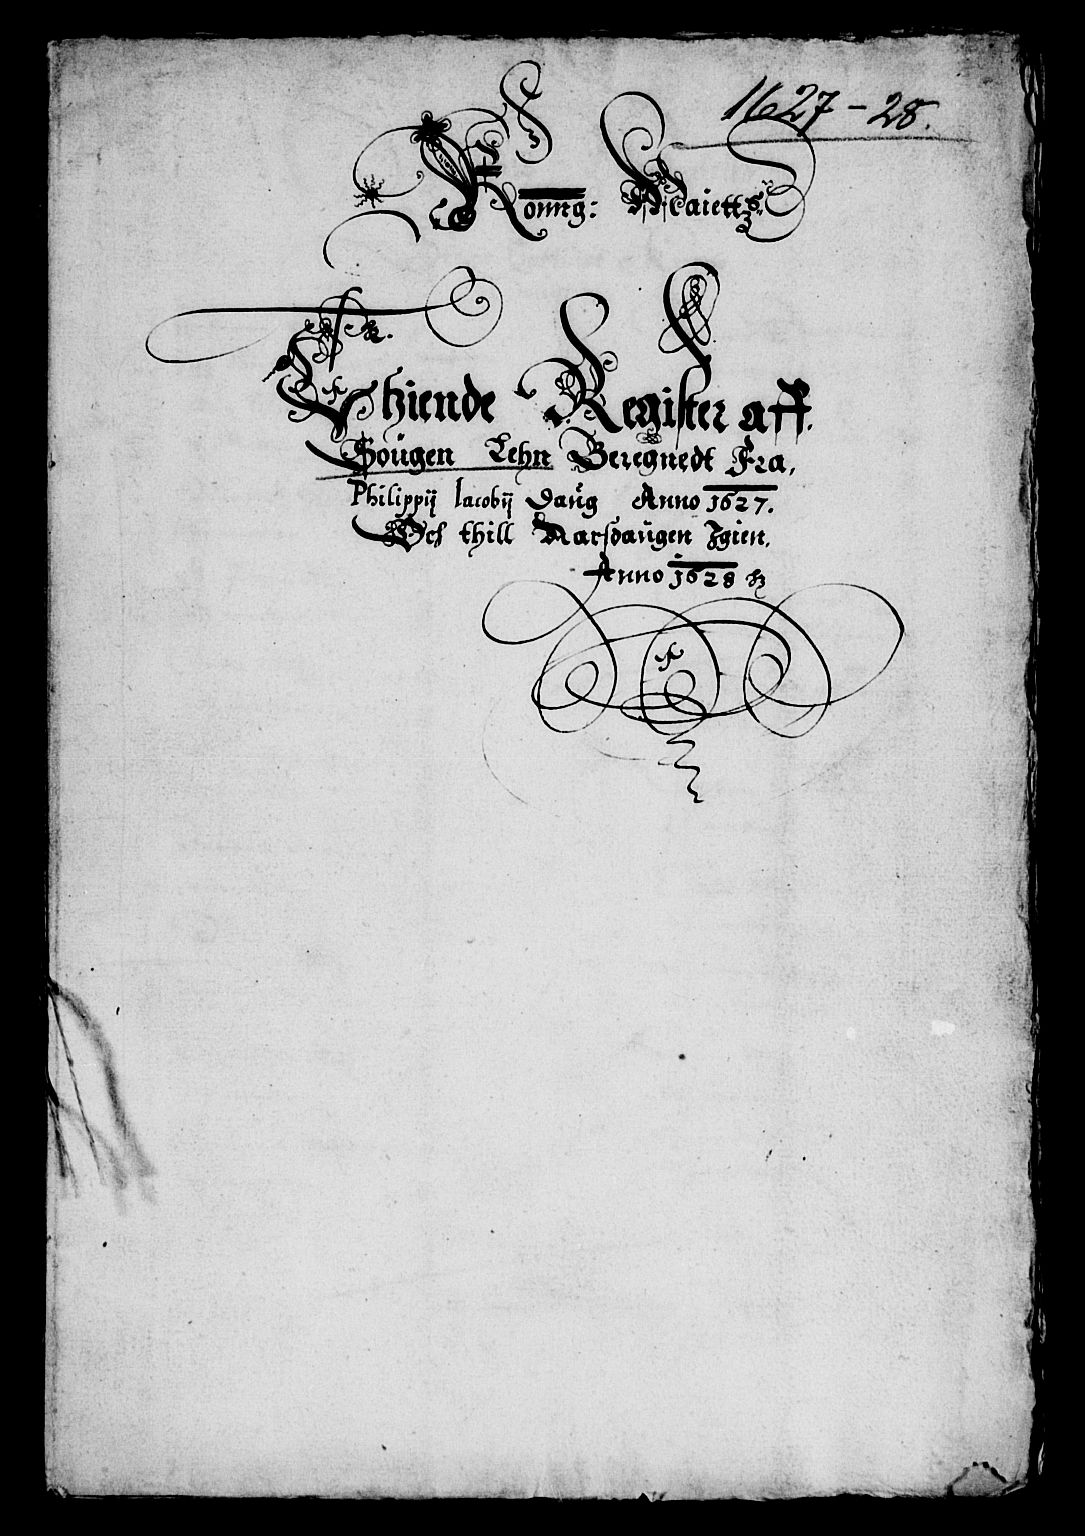 1627-28.
Konng: Maietts:
Thiende Register aff.
Gougen Lehn Beregnedt Fra,
Philippij Jacobij Daug Anno 1627.
Och thill Aarsdaugen Jgien.
Anno 1628